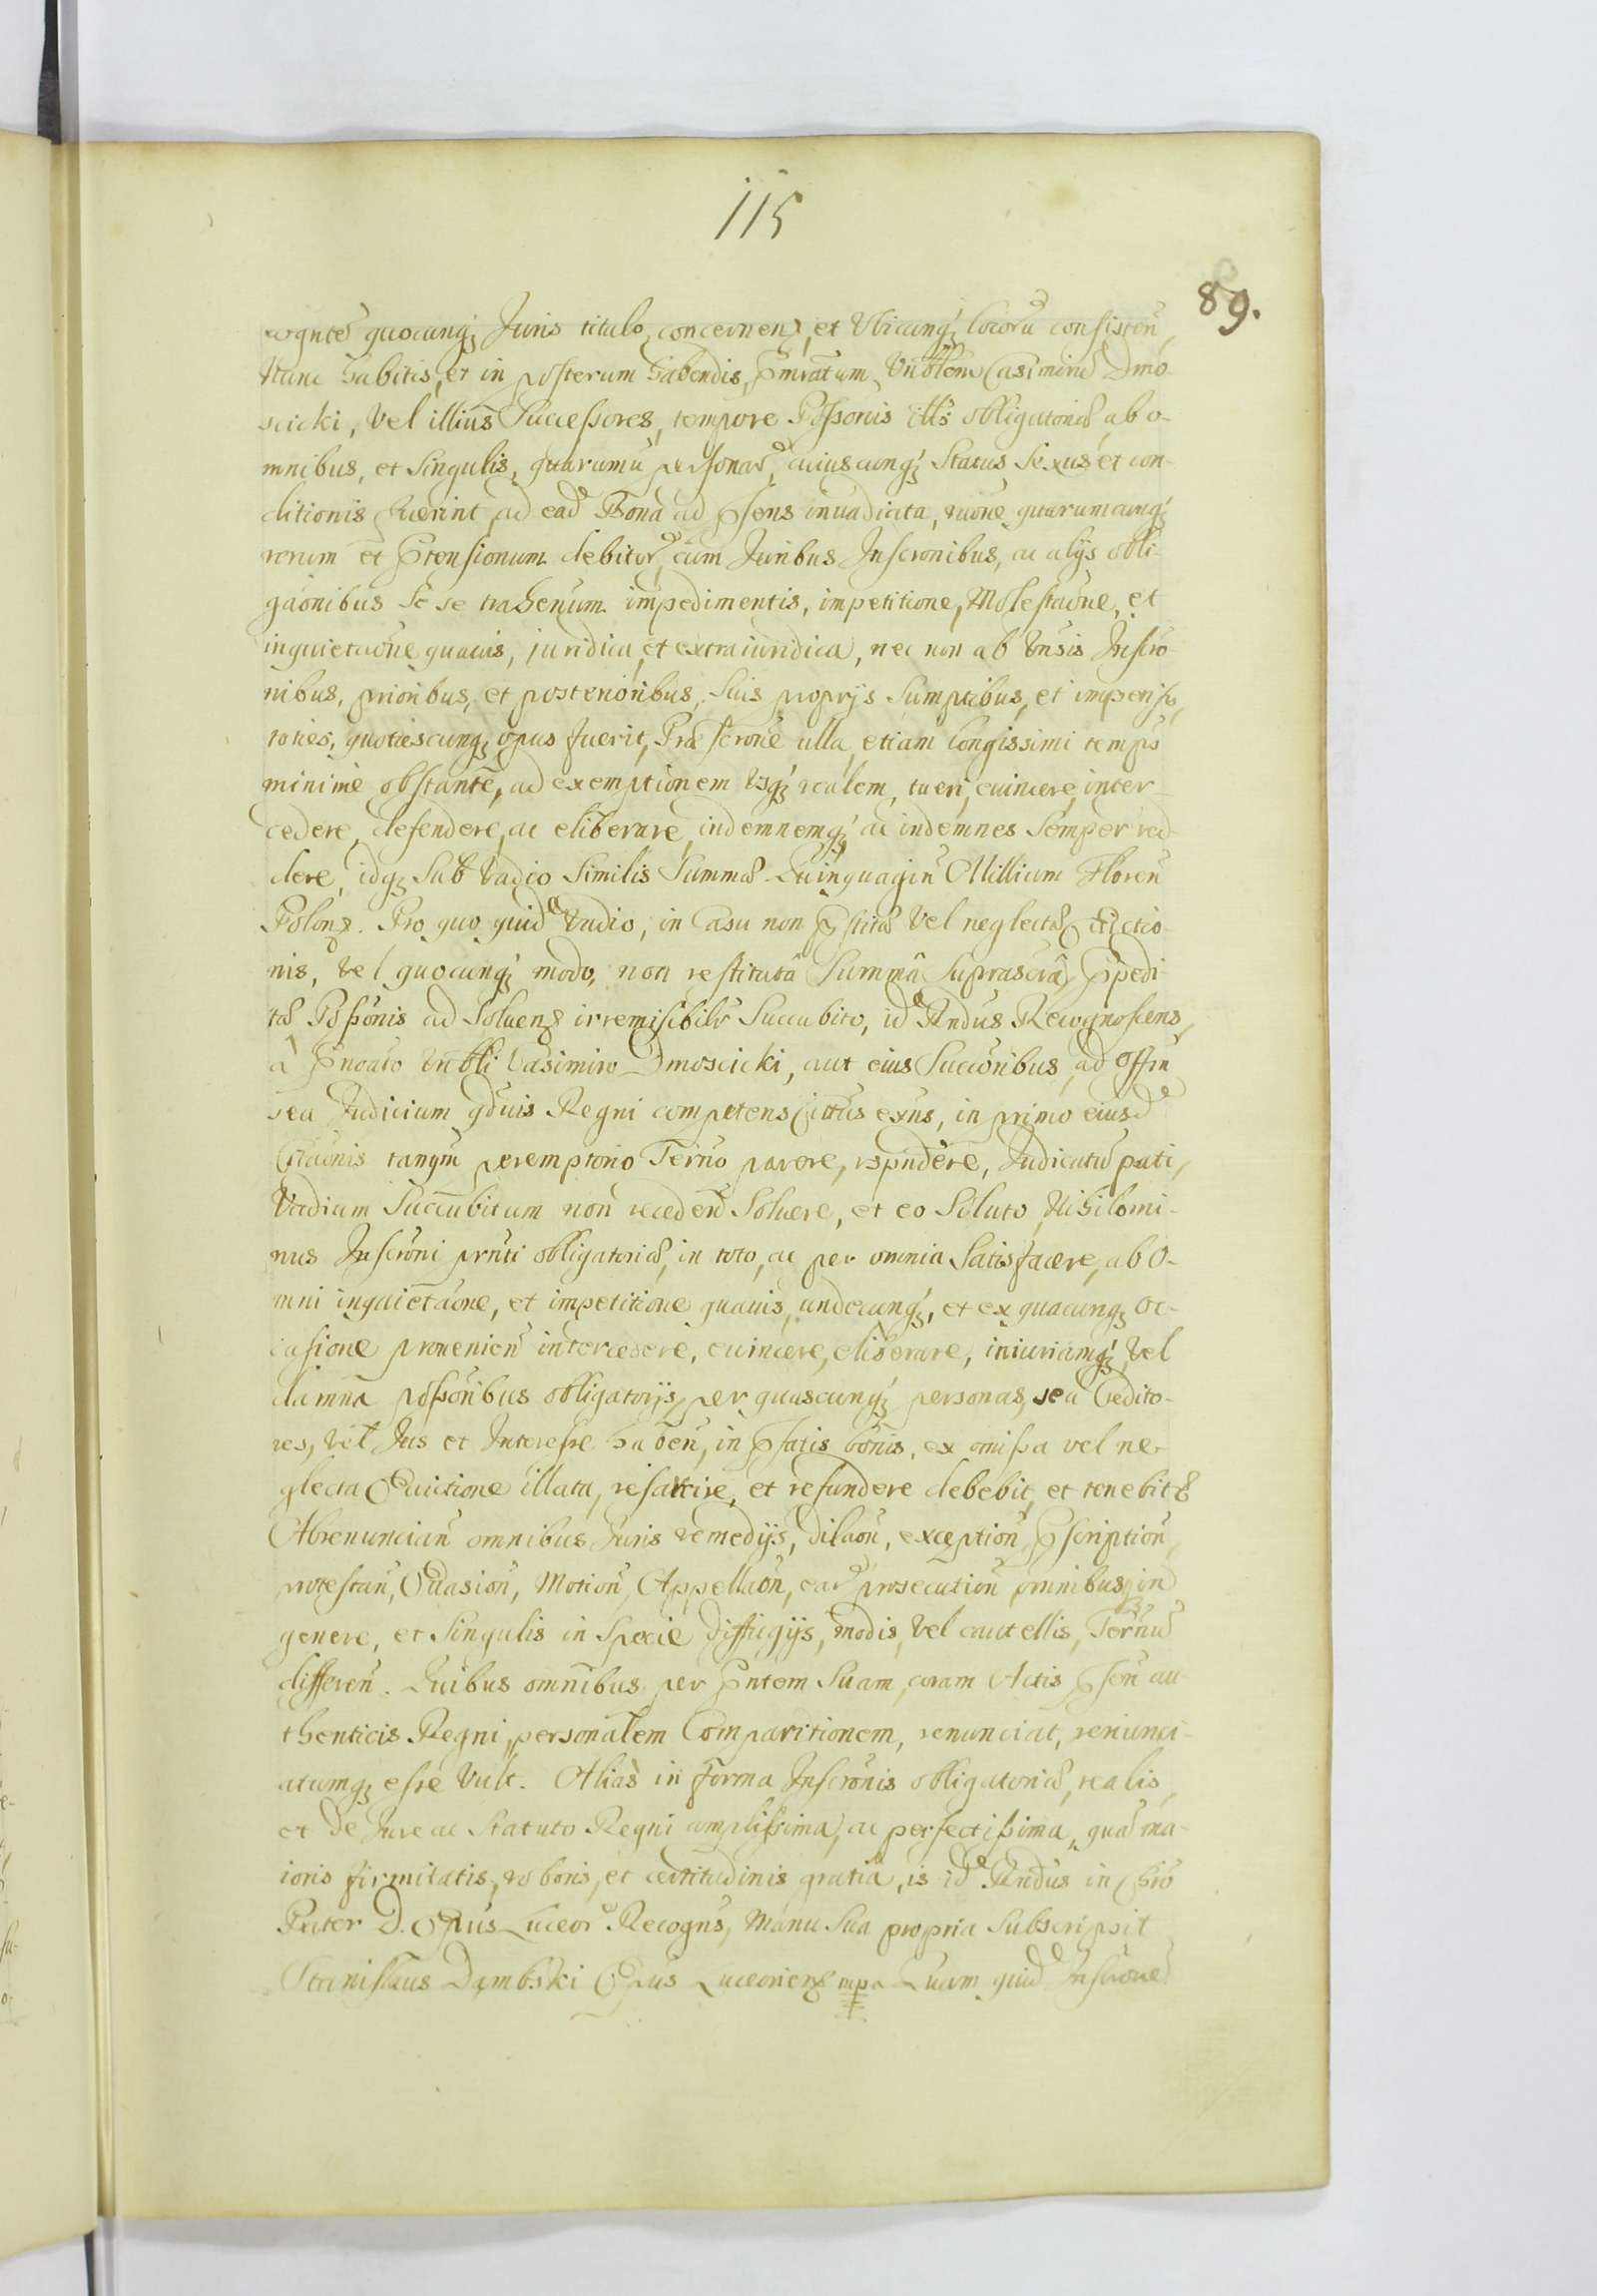 115
89.
cogntẽ quocunq; Juris titulo, concernen, et Ubicunq; locorũ consisten,
Nunc habitis, et in posterum habendis, pmratum Vnoblem Casimirũ Dmo-
scicki, Vel illius Successores, tempore Possonis illis obligatoriæ, ab o-
mnibus, et Singulis, quarumũ personarũ, cuiuscunq; Status Sexus et con-
ditionis fuerint, ad ead Bona ad psens inuadiata, rãone quarumcunq;
rerum et Prtensionum debitorũ, cum Juribus Inscronibus, ac alijs obli-
gaõnibus Se se trahenũm impedimentis, impetitione, Molestaõne, et
inquietaõne quauis, juridica, et extraiuridica, nec non ab Vnsis Inscro-
nibus, prioribus, et posterioribus, Suis proprijs Sumptibus, et impensis,
toties, quotiescunq; opus fuerit, Præscrone ulla, etiam longissimi temps
minime obstante, ad exemptionem Vsq; realem, tueri, euincere, inter-
cedere, defendere, ac eliberare, indemnemq; ac indemnes Semper red-
dere, idq; Sub Vadio Similis Summæ Quinquagin Millium Floren
Polon. Pro quo quid Vadio, in Casu non pstitæ Vel neglectæ Euictio-
nis, Vel quocunq; modo, non restitutâ Summâ Suprascrã, Expedi-
tæ Possonis ad Soluen irremisibilr Succubito, id Rndus Recognoscens,
à Pnoato Vnobli Casimiro Dmoscicki, aut eius Succoribus, ad Offm
seu Judicium qduis Regni competens Cittus exns, in primo eiusd
Citaonis tanqm peremptorio Termo parere, rspndere, Judicatũ pati,
Vadium Succubitum non recedend Soluere, et eo Soluto, Nihilomi-
nus Inscroni prnti obligatoriæ, in toto, ac per omnia Satisfacere, ab o-
mni inquietaone, et impetitione quauis, undecunq;, et ex quacunq; oc-
casione prouenien intercedere, euincere, eliberare, iniuriamq; Vel
damna possoribus obligatorijs per quascunq; personas, seu Credito-
res, Vel Jus et Interesse haben, in psatis bonis, ex omissa vel ne-
glecta Euictione illata, resarcire, et refundere debebit, et tenebitr
Abrenuncian omnibus Juris remedijs, dilaon, exception, pscription,
protestan, Euasion, Motion, Appellaon, earũ prosecution omnibus in
genere, et Singulis in Specie diffugijs, modis, Vel cautellis, Ternũ
differen. Quibus omnibus per Pntem Suam, coram Actis psen au-
thenticis Regni, personalem Comparitionem, renunciat, renunci-
atumq; esse Vult. Aliàs in forma Inscronis obligatoriæ, realis,
et de Jure ac Statuto Regni amplissima, ac perfectissima, quã ma-
ioris firmitatis, roboris, et certitudinis gratiâ, is id Rndus in Chro
Pater D. Eppus Luceor Recogns, Manu Sua propria Subscripsit
Stanislaus Dąmbski Eppus Luceorien mpa Quam quid Inscrone